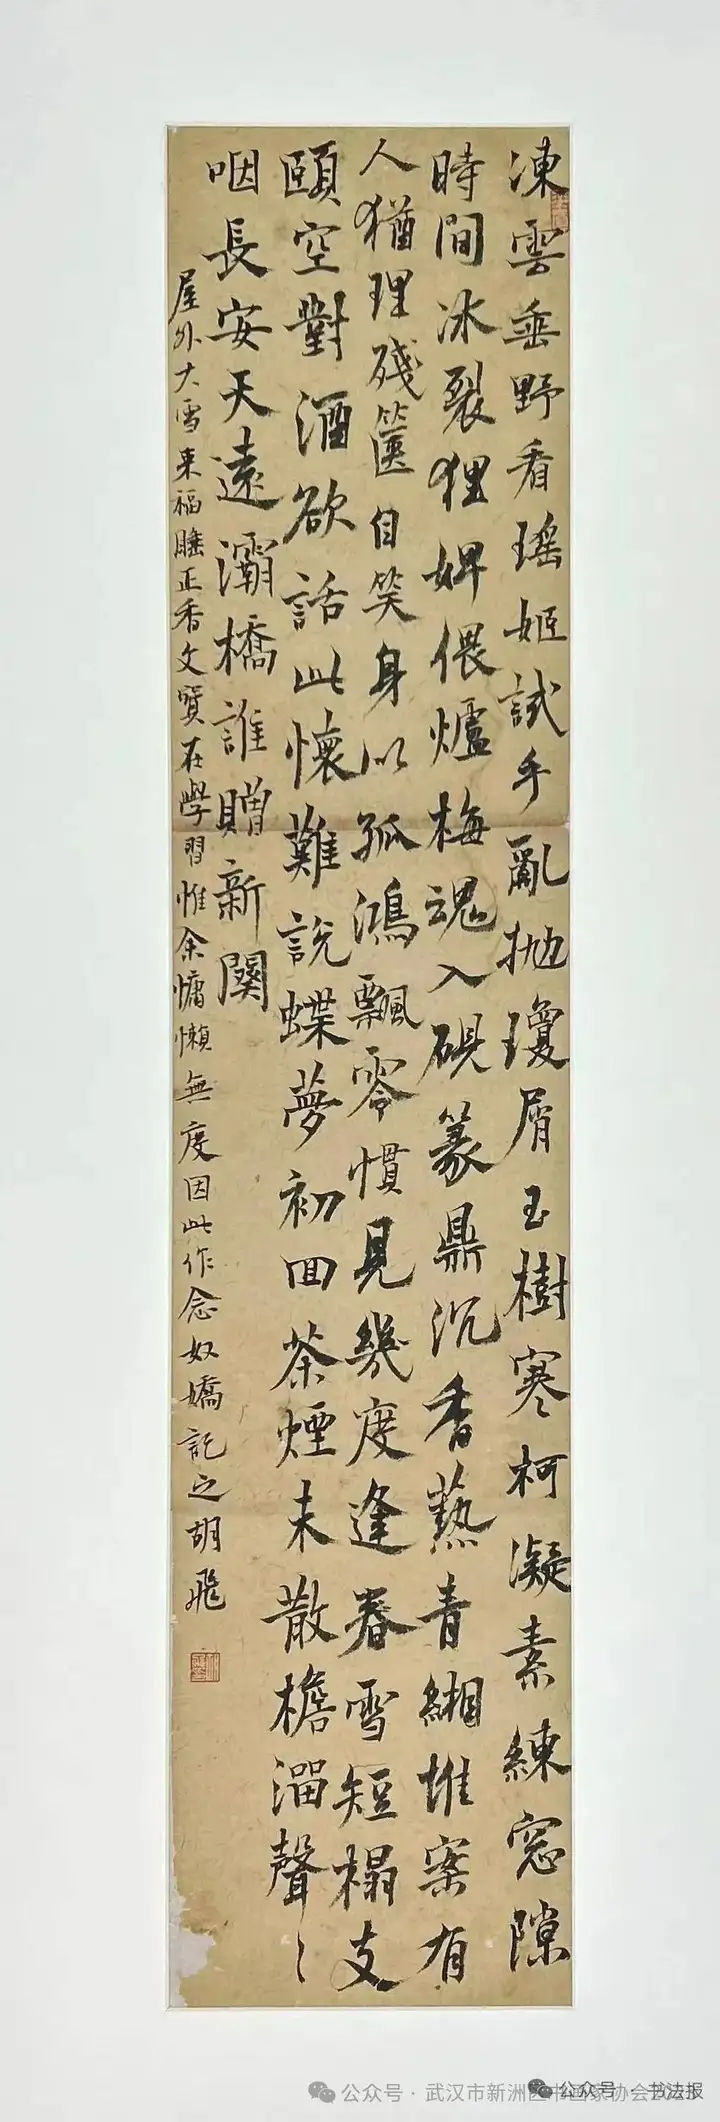 凍雲垂野看瑤姬試手亂拋瓊屑玉樹寒柯凝素練窓隙
時間冰裂狸婢偎爐梅魂入硯篆鼎沉香爇青緗堆案有
人猶理殘篋自笑身以孤鴻飄零慣見幾度逢春雪短榻支
頤空對酒欲話此懷難説蝶夢初回茶煙未散檐溜聲〻
咽長安天遠灞橋誰贈新闋
屋外大雪来福睡正香文寶在學習惟余慵懶無度因此作念奴嬌記之胡飛
公众号·武汉市新洲区书画家协会
公众号·书法报